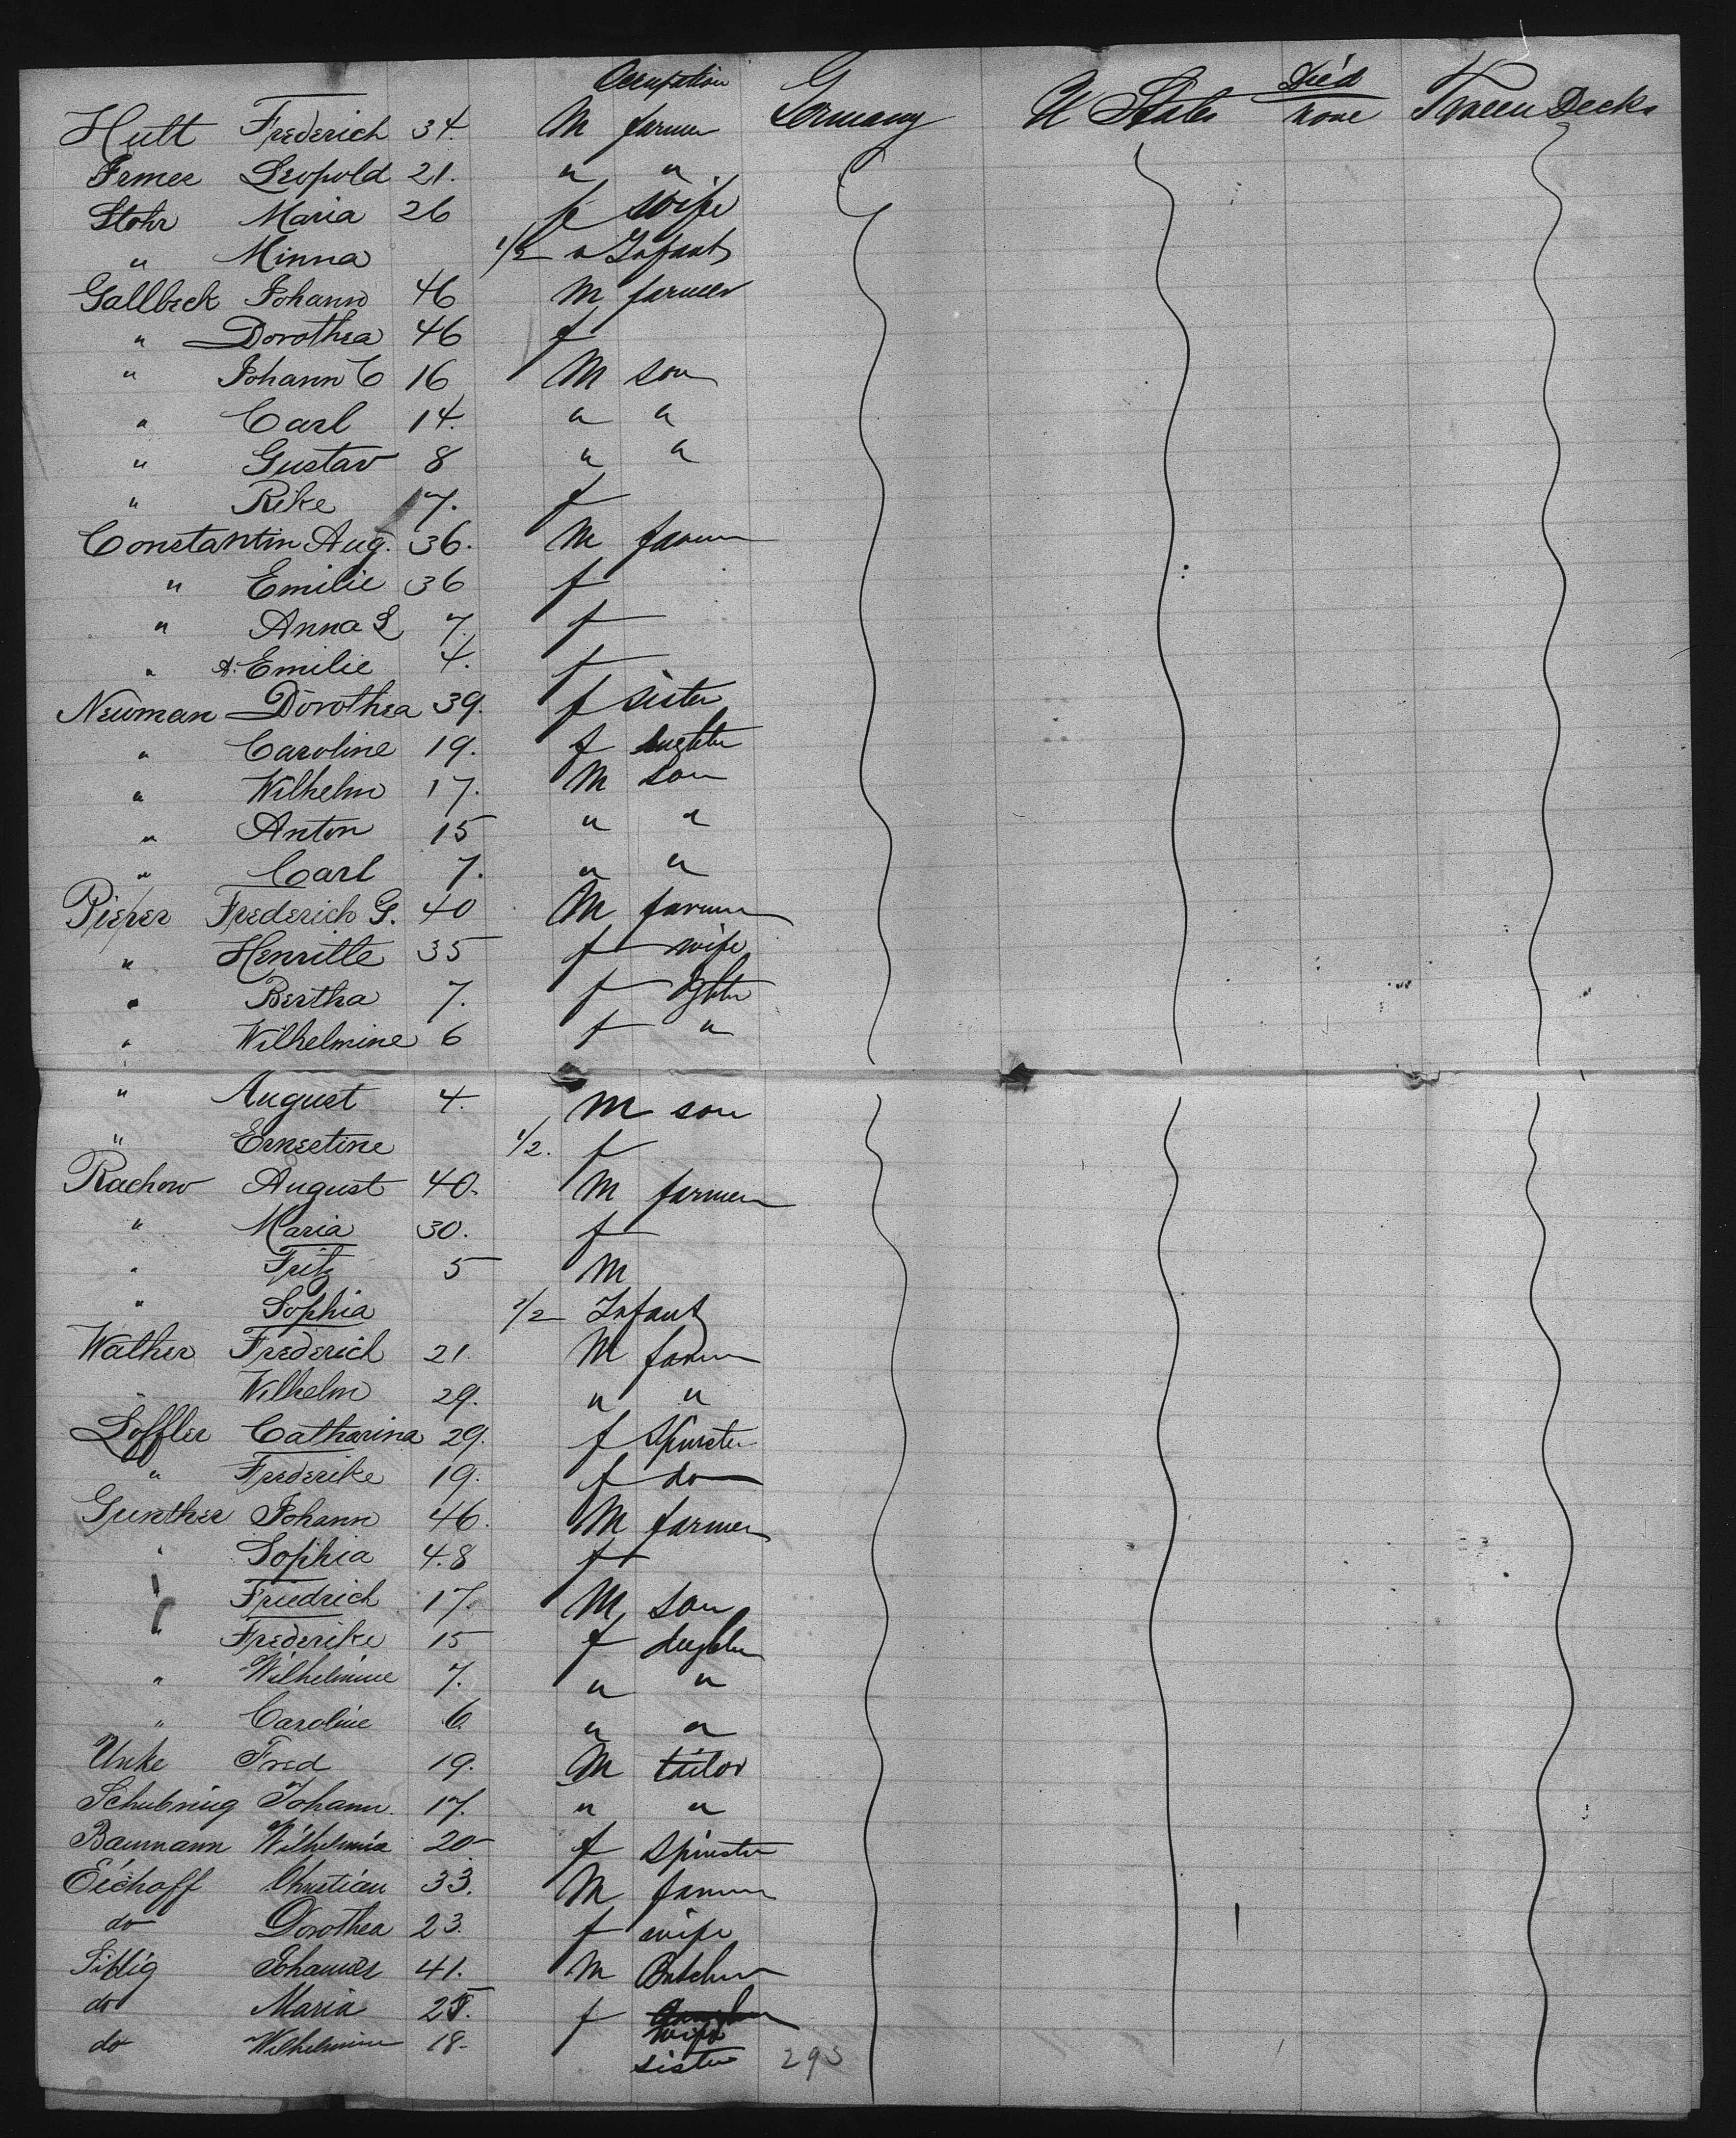 Occupation Died
Hutt Frederich 34. M farmer Germany U States none Tween Decks
Irmer Leopold 21. " "
Stohr Maria 26 f wife
" Minna 1/2 " Infant
Gallbeck Johann 46 M farmer
" Dorothea 46 f
" Johann C 16 M son
" Carl 14. " "
" Gustav 8 " "
" Rike 7. f
Constantin Aug. 36. M farmer
" Emilie 36 f
" Anna L 7. f
" A. Emilie 4. f
Neuman Dorothea 39. f sister
" Caroline 19. f
" Wilhelm 17. M son
" Anton 15 " "
" Carl 7. " "
Pieper Frederich G. 40 M farmer
" Henritte 35 f wife
" Bertha 7. f dghter
" Wilhelmine 6 f "
" August 4. M son
" Ernestine 1/2. f
Rachow August 40. M farmer
" Maria 30. f
" Fritz 5 M
" Sophia 1/2 Infant
Walher Frederich 21. M farmer
" Wilhelm 29. " "
Löffler Catharina 29. f Spinster
" Frederike 19. f do
Gunther Johann 46. M farmer
" Sophia 48 f
" Friedrich 17. M son
" Frederike 15 f
" Wilhelmine 7. " "
" Caroline 6. " "
Unke Fred 19. M tailor
Schubring Johann. 17. " "
Baumann Wilhelmia 20 f Spinster
Eichoff Christian 33. M farmer
do Dorothea 23. f wife
Sittig Johannes 41. M Butcher
do Maria 25. f wife
do Wilhelmine 18. sister 295